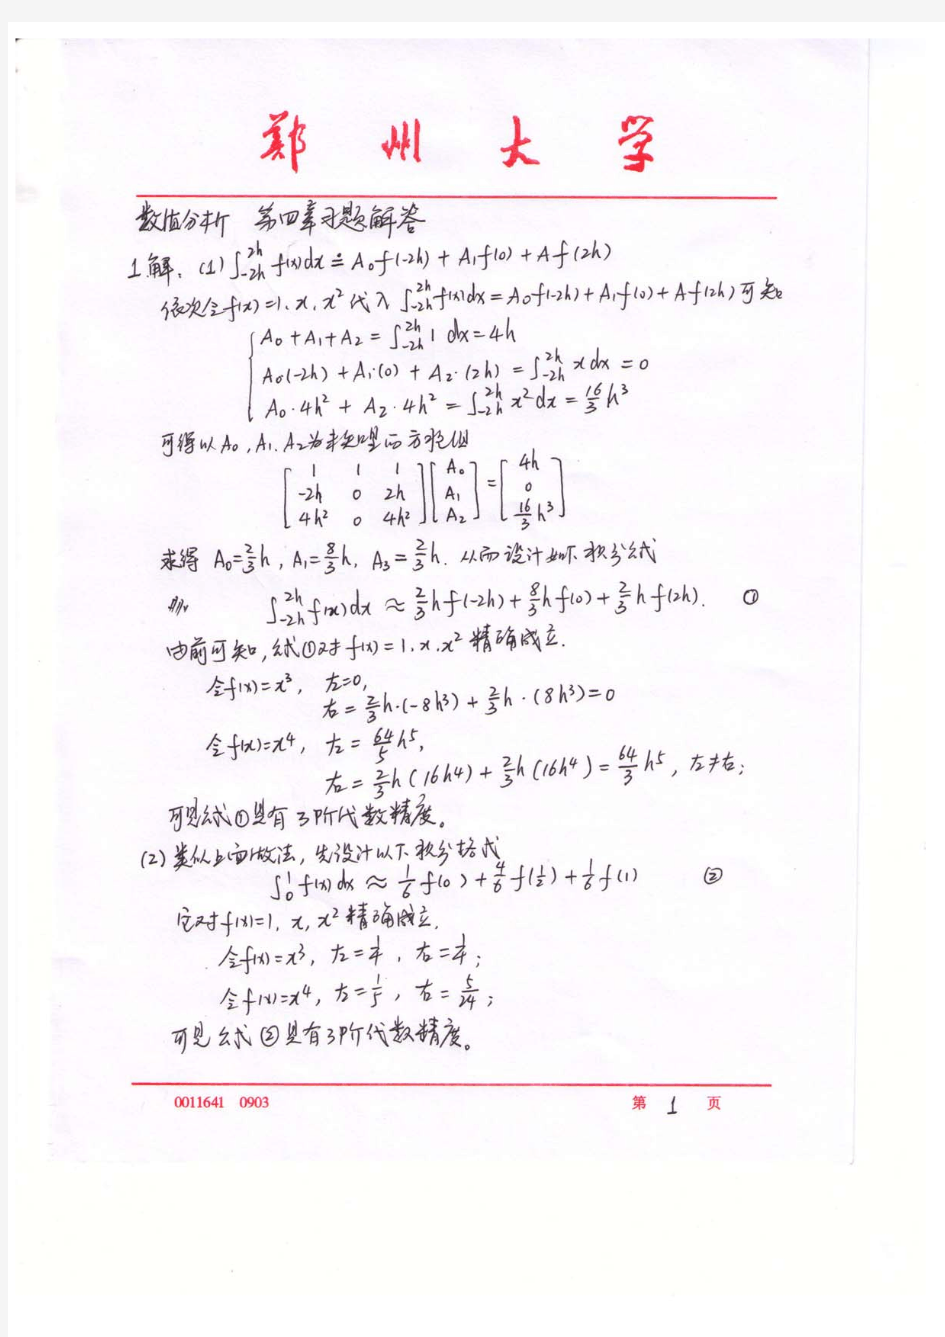 郑州大学
数值分析 第四章习题解答
1解: (1) ∫_{-2h}^{2h} f(x)dx ≐ A₀f(-2h) + A₁f(0) + Af(2h)
依次令f(x)=1, x, x² 代入 ∫_{-2h}^{2h} f(x)dx = A₀f(-2h) + A₁f(0) + Af(2h) 可知
{ A₀ + A₁ + A₂ = ∫_{-2h}^{2h} 1 dx = 4h
A₀(-2h) + A₁·(0) + A₂·(2h) = ∫_{-2h}^{2h} x dx = 0
A₀·4h² + A₂·4h² = ∫_{-2h}^{2h} x²dx = 16/3 h³
可得以A₀, A₁, A₂为未知量的方程组
[1 1 1; -2h 0 2h; 4h² 0 4h²] [A₀; A₁; A₂] = [4h; 0; 16/3 h³]
求得 A₀=2/3 h, A₁=8/3 h, A₃=2/3 h. 从而设计如下积分公式
∫_{-2h}^{2h} f(x)dx ≈ 2/3 hf(-2h) + 8/3 hf(0) + 2/3 hf(2h). ①
由前可知, 公式①对f(x)=1, x, x²精确成立.
令f(x)=x³, 左=0,
右 = 2/3 h·(-8h³) + 2/3 h·(8h³) = 0
令f(x)=x⁴, 左 = 64/5 h⁵,
右 = 2/3 h(16h⁴) + 2/3 h(16h⁴) = 64/3 h⁵, 左≠右;
可见公式①具有3阶代数精度。
(2) 类似上面做法, 先设计以下积分格式
∫₀¹ f(x)dx ≈ 1/6 f(0) + 4/6 f(1/2) + 1/6 f(1) ②
它对f(x)=1, x, x²精确成立.
令f(x)=x³, 左=1/4, 右=1/4;
令f(x)=x⁴, 左=1/5, 右=5/24;
可见公式②具有3阶代数精度。
0011641 0903 第 1 页